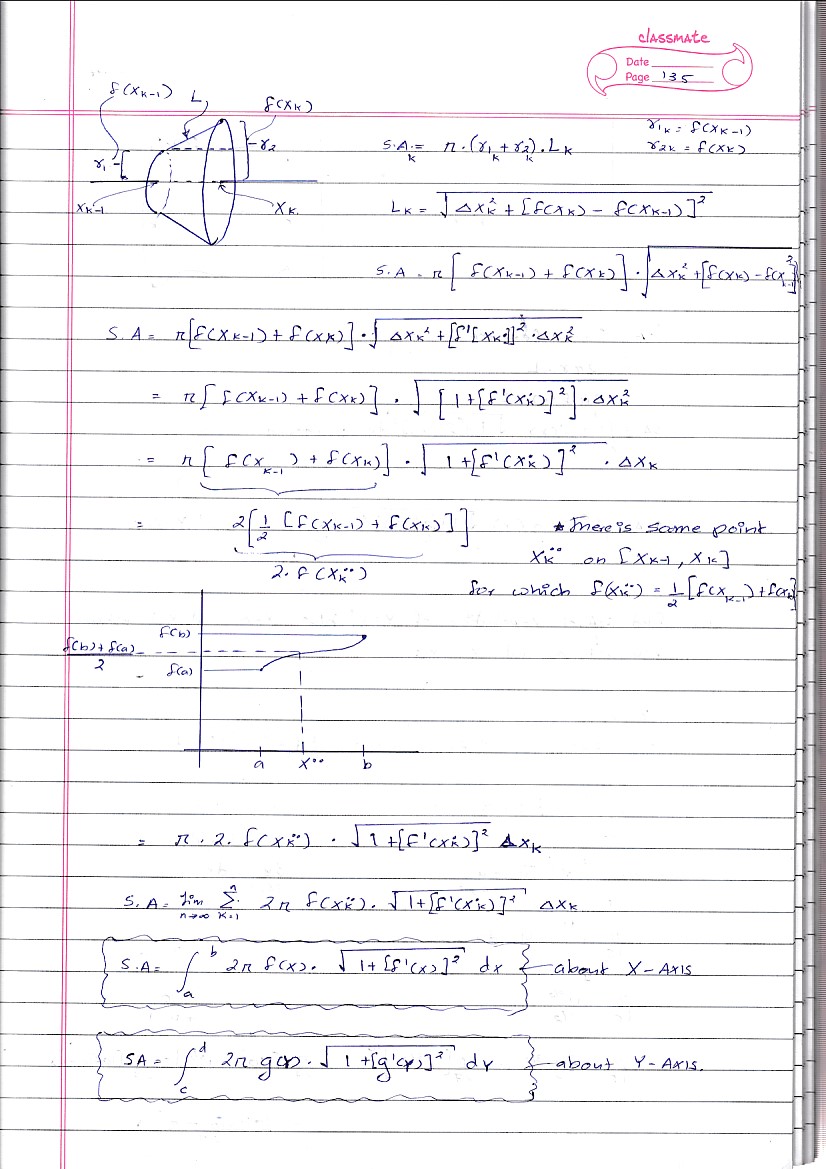 classmate
Date
Page 135
f(xk-1) L f(xk)
r1 r2
xk-1 xk
S.A.k = π·(r1k + r2k)·Lk
r1k = f(xk-1)
r2k = f(xk)
Lk = √(Δxk² + [f(xk) - f(xk-1)]²)
S.A = π[f(xk-1) + f(xk)]·√(Δxk² + [f(xk) - f(xk-1)]²)
S.A = π[f(xk-1) + f(xk)]·√(Δxk² + [f'[xk˙]]²·Δxk²)
= π[f(xk-1) + f(xk)]·√([1+[f'(xk˙)]²]·Δxk²)
= π[f(xk-1) + f(xk)]·√(1+[f'(xk˙)]²)·Δxk
= 2[1/2 [f(xk-1) + f(xk)]]
2·f(xk¨)
* There is some point
xk¨ on [xk-1, xk]
for which f(xk¨) = 1/2 [f(xk-1) + f(xk)]
f(b)
f(b)+f(a)
2
f(a)
a x¨ b
= π·2·f(xk¨)·√(1+[f'(xk˙)]²) Δxk
S.A = lim n→∞ Σ k=1 n 2π f(xk¨)·√(1+[f'(xk˙)]²) Δxk
S.A = ∫a b 2π f(x)·√(1+[f'(x)]²) dx about X-AXIS
SA = ∫c d 2π g(y)·√(1+[g'(y)]²) dy about Y-AXIS.